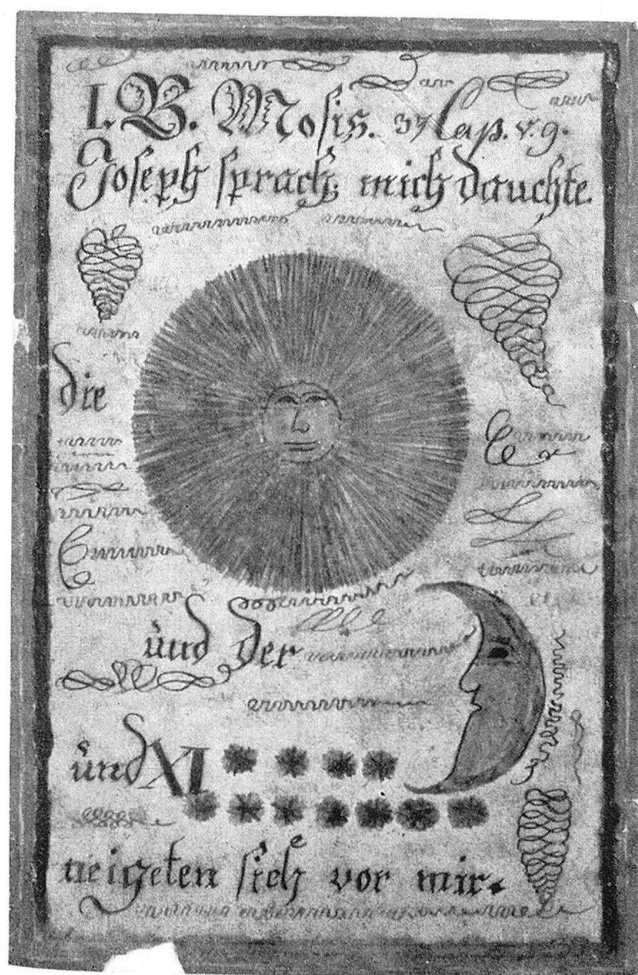 I. B. Mosis. 37 Cap. v. 9.
Joseph sprach, mich dauchte
die
und der
ůnd XI
neigeten sich vor mir.